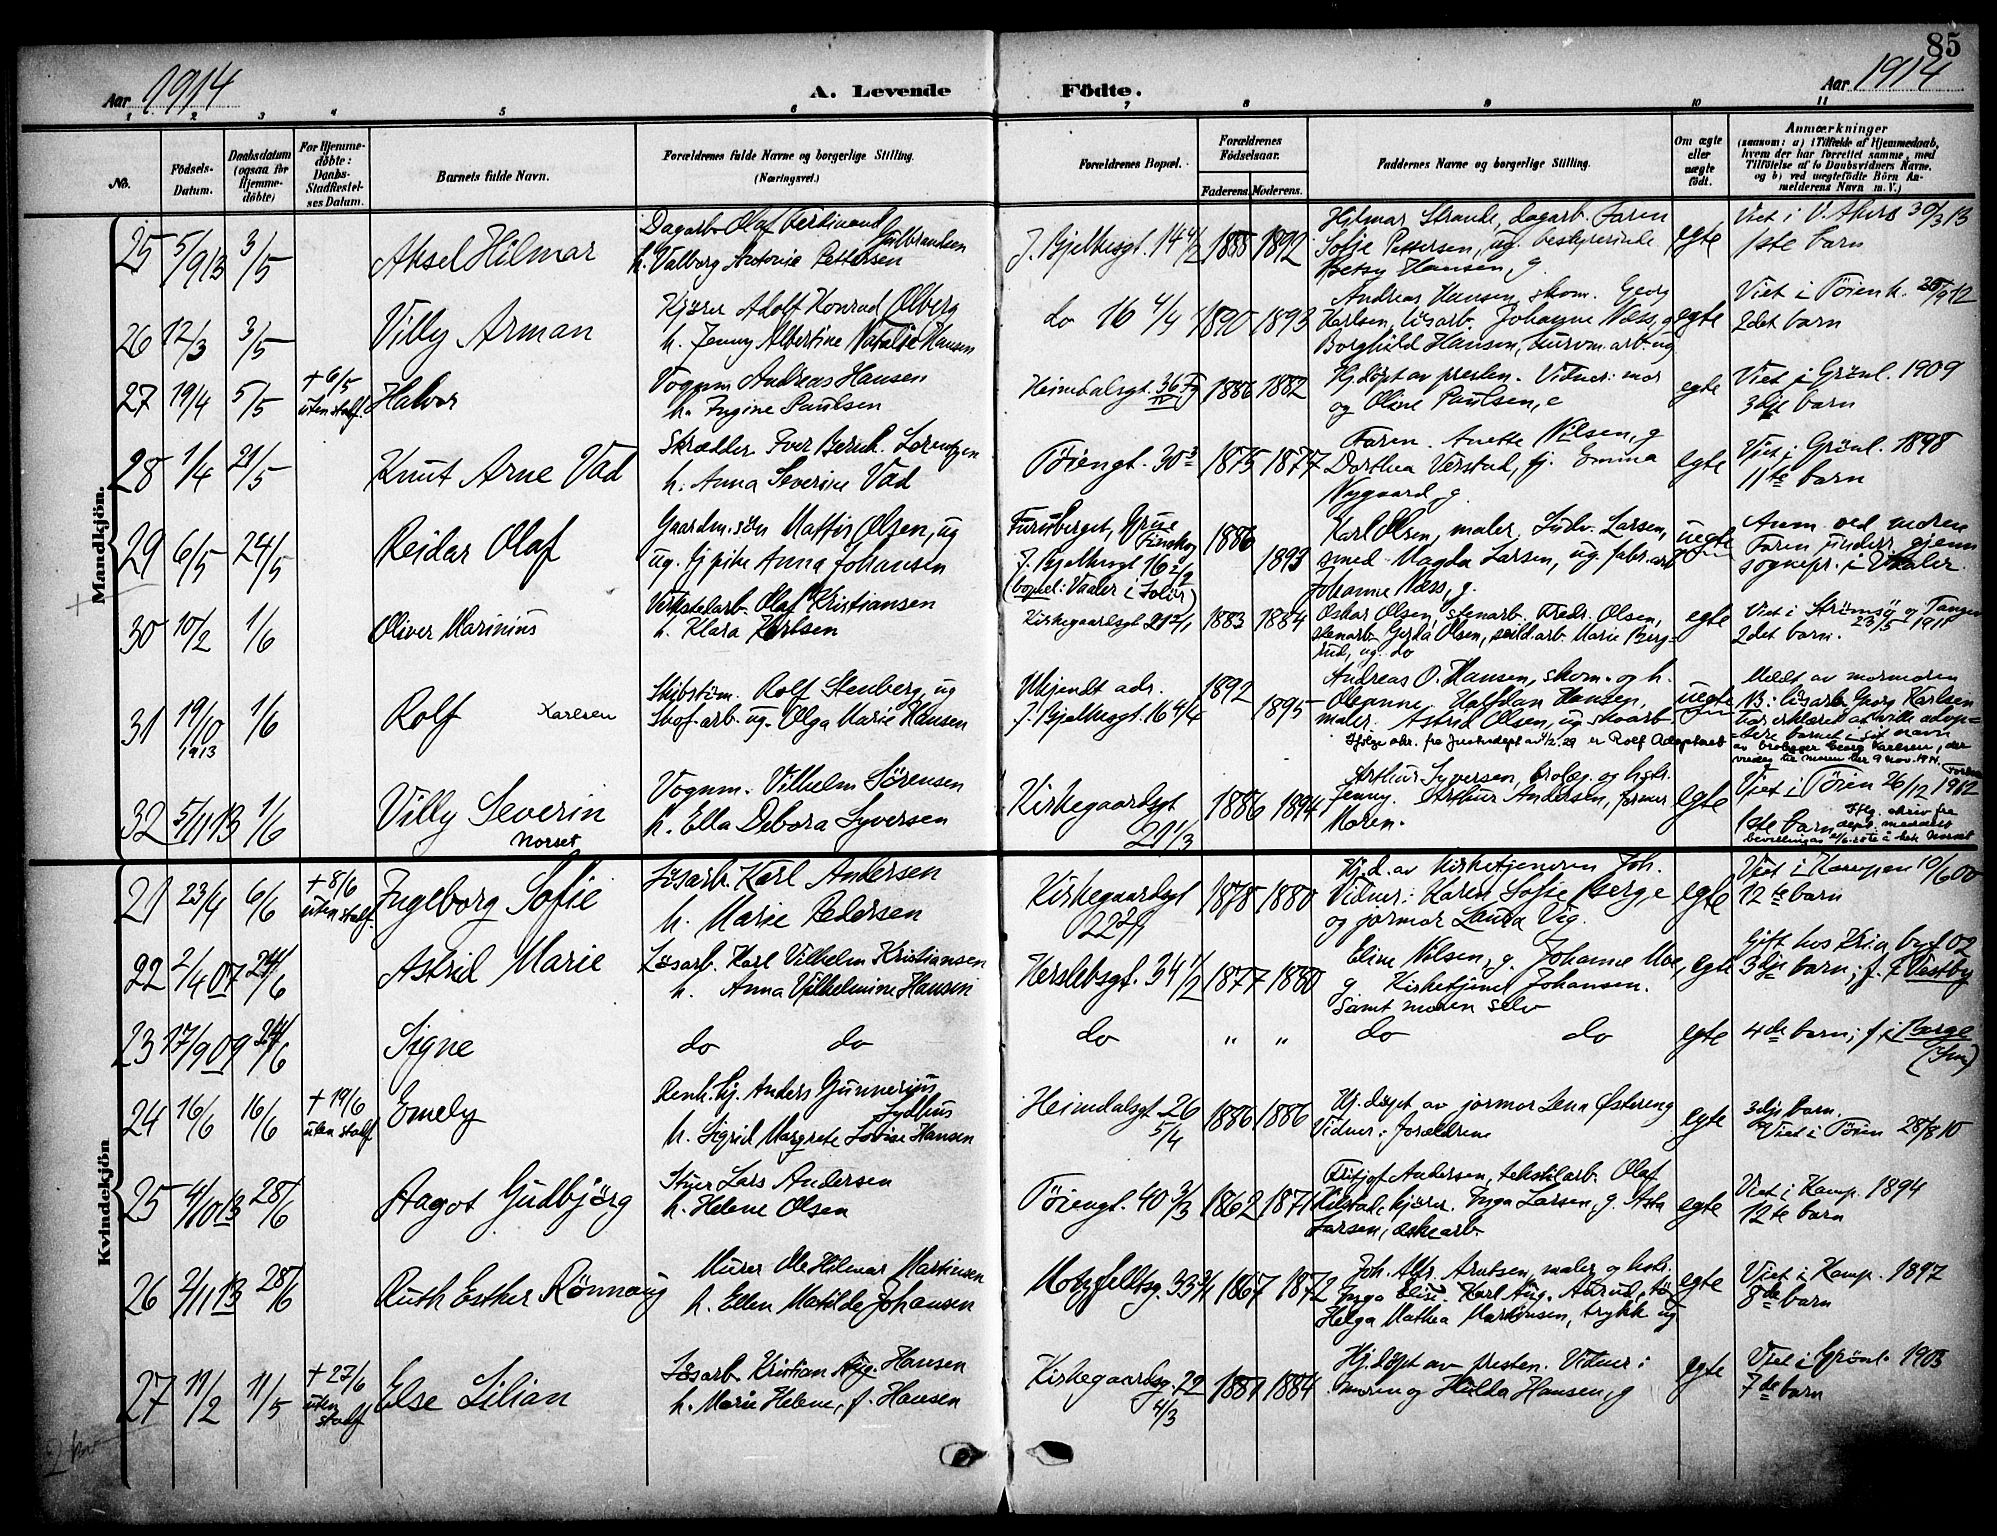 85
Aar 1914
A. Levende Födte.
Aar 1914
1 2 3 4 5 6 7 8 9 10 11
No.
Födsels-Datum.
Daabsdatum (ogsaa for Hjemme-döbte)
For Hjemme-döbte: Daabs-Stadfæstel-ses Datum.
Barnets fulde Navn.
Forældrenes fulde Navne og borgerlige Stilling. (Næringsvei.)
Forældrenes Bopæl.
Forældrenes Födselsaar.
Faderens. Moderens.
Faddernes Navne og borgerlige Stilling.
Om ægte eller uægte födt.
Anmærkninger
(saasom: a) i Tilfælde af Hjemmedaab,
hvem der har forrettet samme, med
Tilföielse af to Daabsvidners Navne,
og b) ved uægtefödte Börn An-
melderens Navn m. V.)
Mandkjön.
25 5/9 13 3/5 Aksel Hilmar
Dagarb. Olaf Ferdinand Gulbrandsen
h. Valborg Antonie Pettersen
J. Bjelkesgt. 14 4/2 1888 1892
Hjelmar Strande, dagarb. Faren
Sofie Pettersen, ug. bestyrerinde
Betsy Hansen, g.
egte
Viet i V. Aker 30/3 13
1ste barn
26 12/3 3/5 Villy Arman
Kjører Adolf Konrad Olberg
h. Jenny Albertine Natalie Hansen
do 16 4/4 1890 1893
Andreas Hansen, skom. Georg
Karlsen, løsarb. Johanne Næss, g
Borghild Hansen, arb. ug
egte
Viet i Töien k. 30/9 12
2det barn
27 19/4 5/5 + 6/5 uten stadf. Halvor
Vognm Andreas Hansen
h. Ingine Paulsen
Heimdalsgt. 36 1886 1882
Hj.döpt av presten. Vidner: mor
og Oline Paulsen, e
egte
Viet i Grönl. 1909
3dje barn
28 1/4 21/5 Knut Arne Vad
Skrædder Iver Bernh. Lorentzen
h. Anna Severine Vad
Töiengt. 30 3 1875 1877
Faren. Anette Nilsen, g
Dorthea Verstad, fj. Emma
Nygaard, g.
egte
Viet i Grönl. 1898
11te barn
29 6/5 24/5 Reidar Olaf
Gaardm.sön Mattis Olsen, ug
ug. fj.pike Anna Johansen
Furuberget, Grue Finskog
J. Bjelkesgt 16 2/2
(bopæl: Vaaler i Solör)
1886 1893
Karl Olsen, maler, Ludv. Larsen,
smed. Magda Larsen, ug. fabr.arb
Johanne Næss, g.
uegte
Anm. ved moren
Faren underr. gjenn
sognepr. i Vaaler.
30 10/2 1/6 Oliver Marinius
Verkstedarb. Olaf Kristiansen
h. Klara Karlsen
Kirkegaardsgt 21 2/1 1883 1884
Oskar Olsen, stenarb. Fredr. Olsen,
stenarb. Gerda Olsen, Marie Berg-
rud, ug. do
egte
Viet i Strömsö og Tangen
23/5 1911
2det barn.
31 19/10 1913 1/6 Rolf Karlsen
Skibstöm. Rolf Stenberg, ug
Skof.arb. ug. Olga Marie Hansen
Ukjendt adr.
J. Bjelkesgt. 16 4/4
1892 1895
Andreas O. Hansen, skom. og h.
Oleanne. Halfdan Hansen,
maler. Astrid Olsen, ug. skoarb
Ifölge skr. fra Justisdept av 4/2.29 er Rolf Adoptert
uegte
Meldt av mormoren
NB: lösarb. Georg Karlsen
har erklæret at ville adop-
tere barnet i sit navn
av brolægger Georg Karlsen, der
viedes til moren den 9 nov. 1914.
32 5/11 13 1/6 Villy Severin
Norset
Vognm. Vilhelm Sörensen
h. Ella Debora Syversen
Kirkegaardsgt
21 1/3
1886 1894
Arthur Syversen, brolæg. og hstr.
Jenny. Arthur Andersen, former
Moren.
egte
Viet i Töien 26/12 1912
1ste barn
Kvindekjön
21 23/4 6/6 + 8/6 uten stadf. Ingeborg Sofie
Lösarb. Karl Andersen
h. Marie Pedersen
Kirkegaardsgt
22 2/1
1878 1880
Hj.d. av Kirketjeneren Joh.
Vidner: Karen Sofie Berg, e
og jormor Laura Vig.
egte
Viet i Kampen 10/6 00
12te barn
22 2/4 07 24/6 Astrid Marie
Lösarb. Karl Vilhelm Kristiansen
h. Anna Vilhelmine Hansen
Herslebsgt. 34 1/2 1877 1880
Eline Nilsen, g. Johanne Moe,
g Kirketjener Johansen.
Samt moren selv
egte
Gift hos Kria byf. 02
3dje barn; f. i Vestby
23 17/9 09 24/6 Signe
do do
do " "
do do
egte
4de barn; f. i Borge
24 16/6 16/6 + 19/6 uten stadf. Emely
Renh.bj. Anders Gunnerius
Sydhus
h. Sigrid Margrete Lovise Hansen
Heimdalsgt. 26
5/4
1886 1886
Hj.döpt av jormor Lena Østereng
Vidner: Forældrene
egte
3dje barn.
Viet i Töien 28/8 10
25 4/10 13 28/6 Aagot Gudbjörg
Stuer Lars Andersen
h. Helene Olsen
Töiengt. 40 3/3 1862 1871
Fritjof Andersen, tekstilarb. Olaf
Kilstad, kjörer. Inga Larsen, g. Asta
Larsen, æskearb.
egte
Viet i Kamp. 1894
12te barn
26 2/11 13 28/6 Ruth Esther Rönnaug
Murer Ole Hilmar Martinsen
h. Ellen Matilde Johansen
Motzfeldtsg. 33 3/1 1867 1872
Joh. Alfr. Arntsen, maler og hstr.
Inga Elise. Karl Aug. Aarud,
Helga Mathea Martinsen, trykk. ug
egte
Viet i Kamp. 1897
8de barn
27 11/2 11/5 + 23/6 uten stadf Else Lilian
Lösarb. Kristian Aug. Hansen
h. Marie Helene, f. Hansen
Kirkegaardsg. 22
4/3
1881 1884
Hj.döpt av presten. Vidner:
moren og Hulda Hansen, g
egte
Viet i Grönl. 1903
7de barn